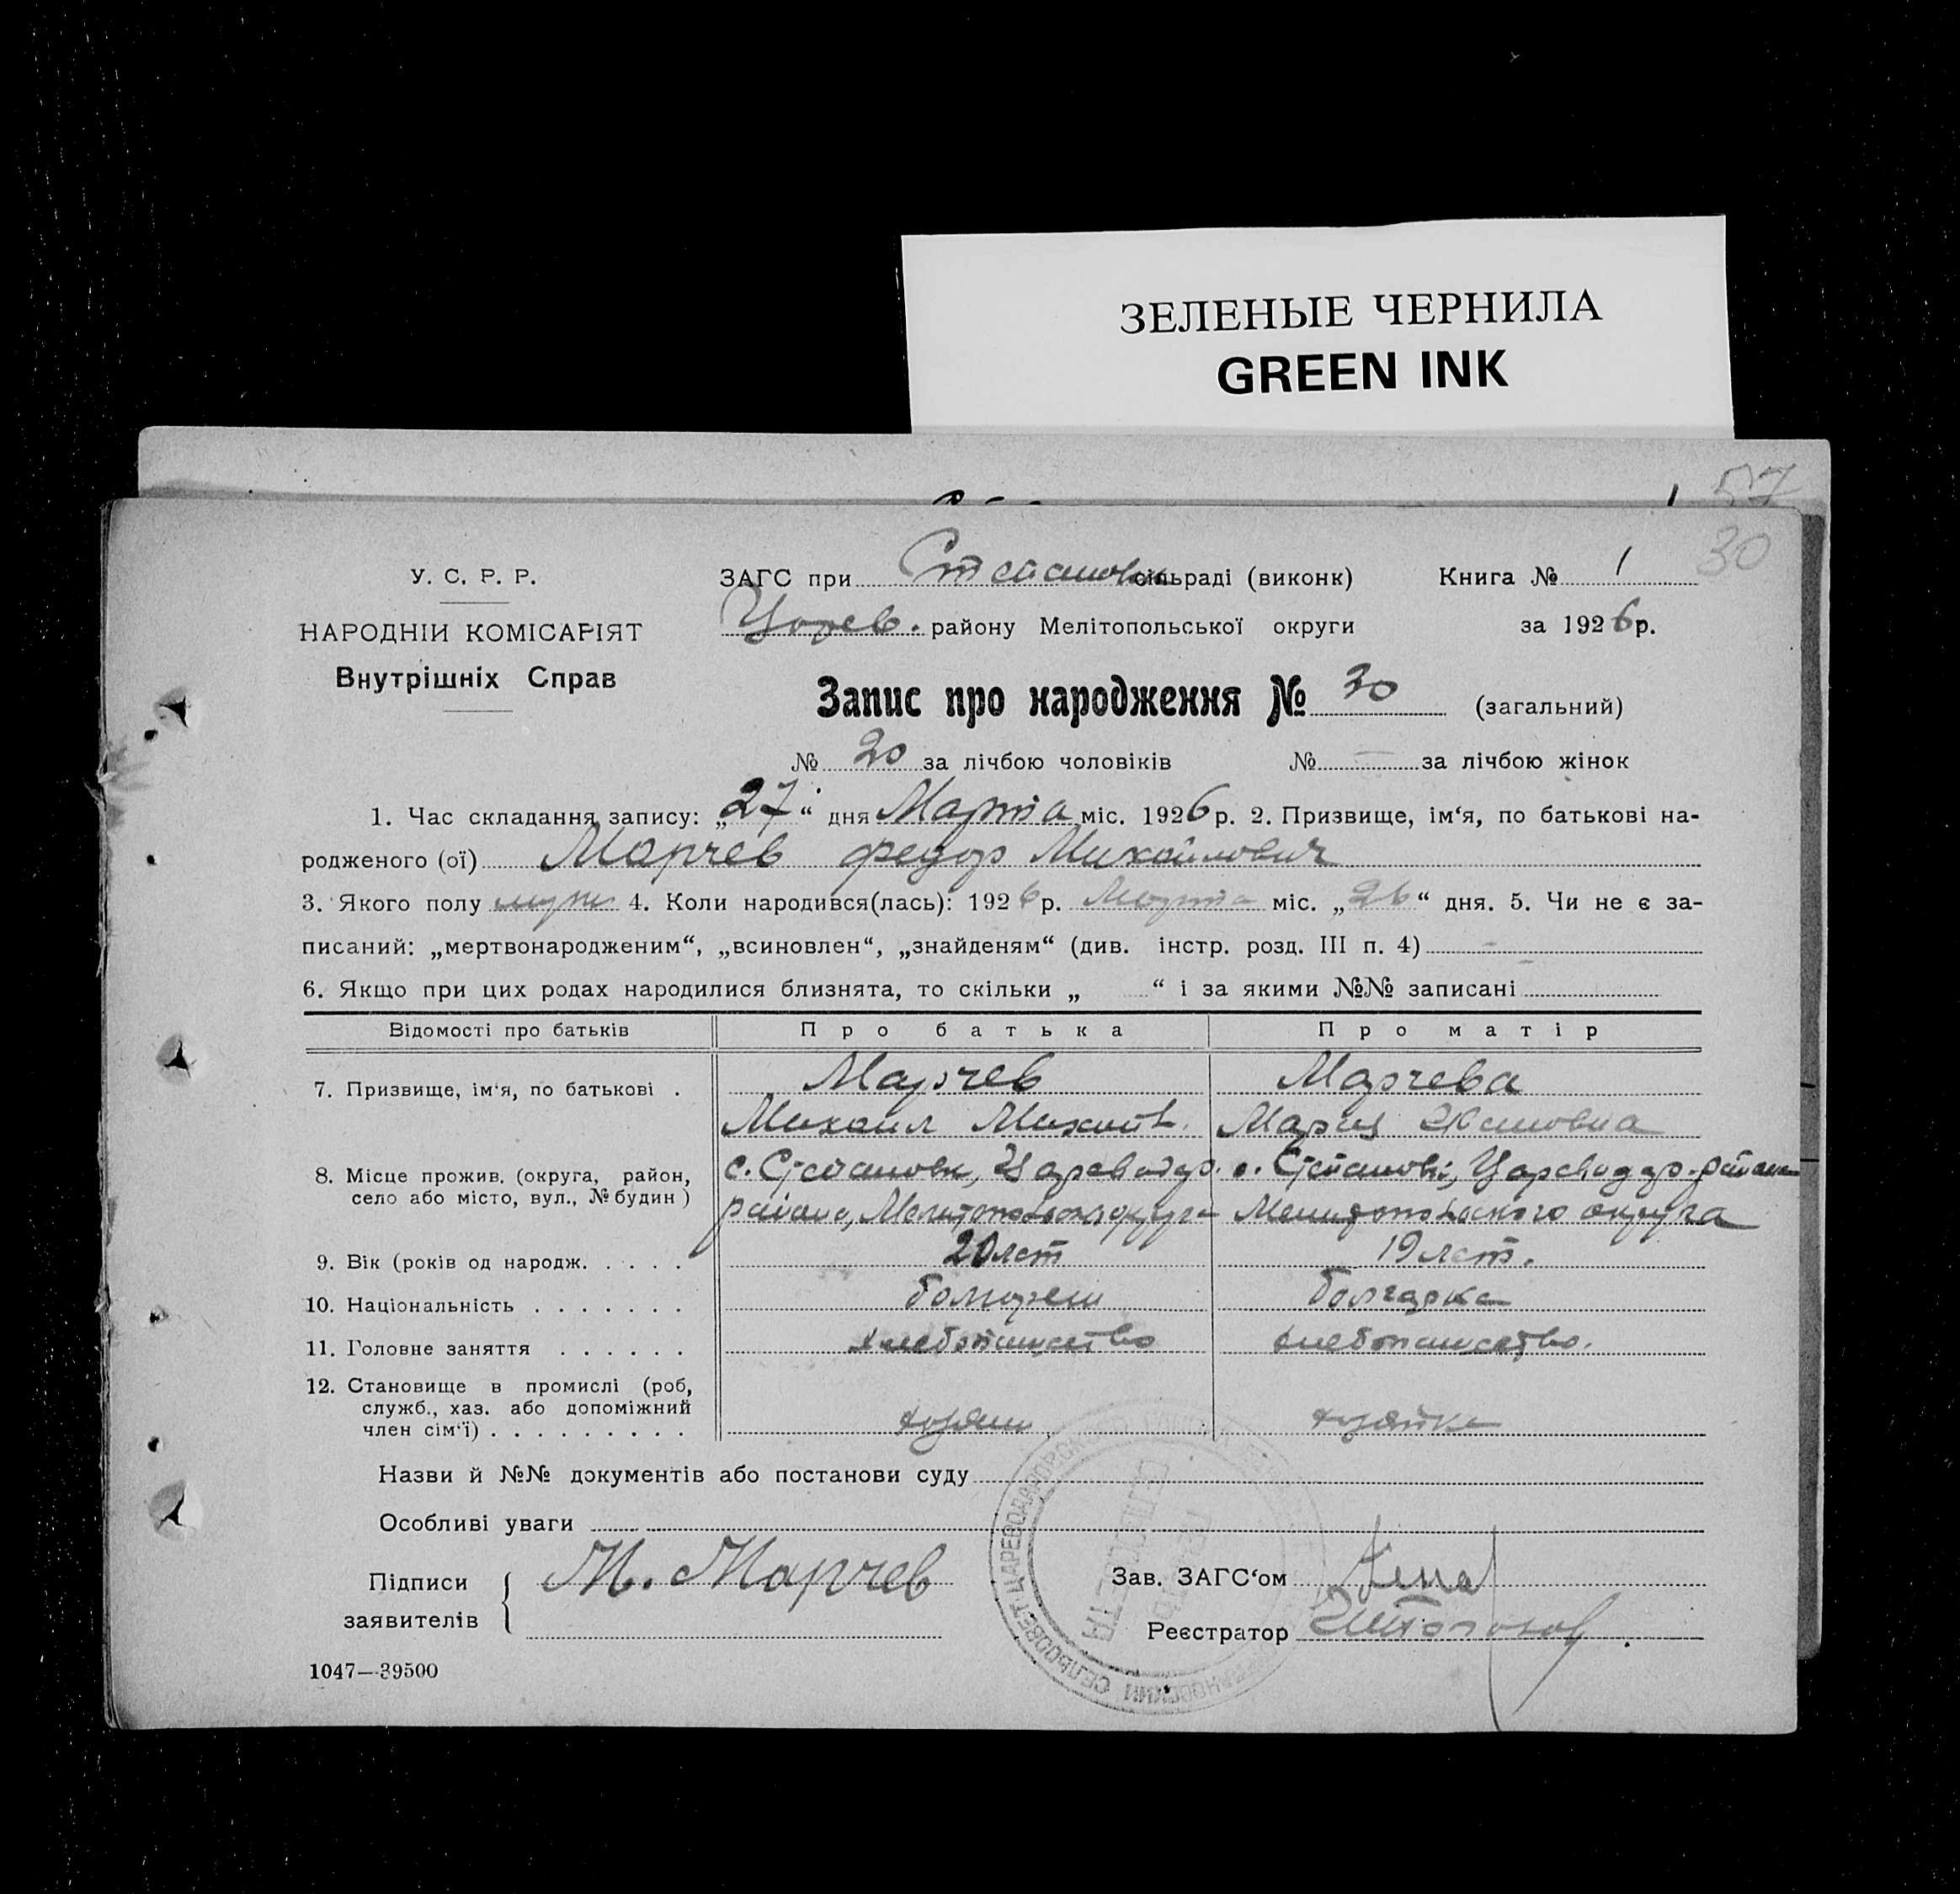 ЗЕЛЕНЫЕ ЧЕРНИЛА
GREEN INK
57
30
У. С. Р. Р.
НАРОДНІЙ КОМІСАРІЯТ
Внутрішніх Справ
ЗАГС при Степановк сільраді (виконк) Книга № 1
Царев. району Мелітопольської округи за 1926 р.
Запис про народження № 30 (загальний)
№ 20 за лічбою чоловіків № — за лічбою жінок
1. Час складання запису: „27“ дня Марта міс. 1926 р. 2. Призвище, ім‘я, по батькові на-
родженого (ої) Марчев федор Михайлович
3. Якого полу муж 4. Коли народився(лась): 1926 р. Марта міс. „26“ дня. 5. Чи не є за-
писаний: „мертвонародженим“, „всиновлен“, „знайденям“ (див. інстр. розд. III п. 4) -
6. Якщо при цих родах народилися близнята, то скільки „ “ і за якими №№ записані
Відомості про батьків Про батька Про матір
7. Призвище, ім‘я, по батькові . Марчев Марчева
Михаил Михайл. Мария
8. Місце прожив. (округа, район, с. Степановк, Цареводар. с. Степановк, Цареводар. района
село або місто, вул., № будин ) района, округа Мелитопольского округа
9. Вік (років од народж. . . . . 20 лет 19 лет.
10. Національність . . . . . . . болгарин болгарка
11. Головне заняття . . . . . . хлебопашество хлебопашество.
12. Становище в промислі (роб,
служб., хаз. або допоміжний
член сім‘ї) . . . . . . . . . хозяин хозяйка
Назви й №№ документів або постанови суду
Особливі уваги
Підписи М. Марчев Зав. ЗАГС‘ом
заявителів Реєстратор
ЦАРЕВОДАРОВСКОГО
СЕЛЬСОВЕТ
1047—39500